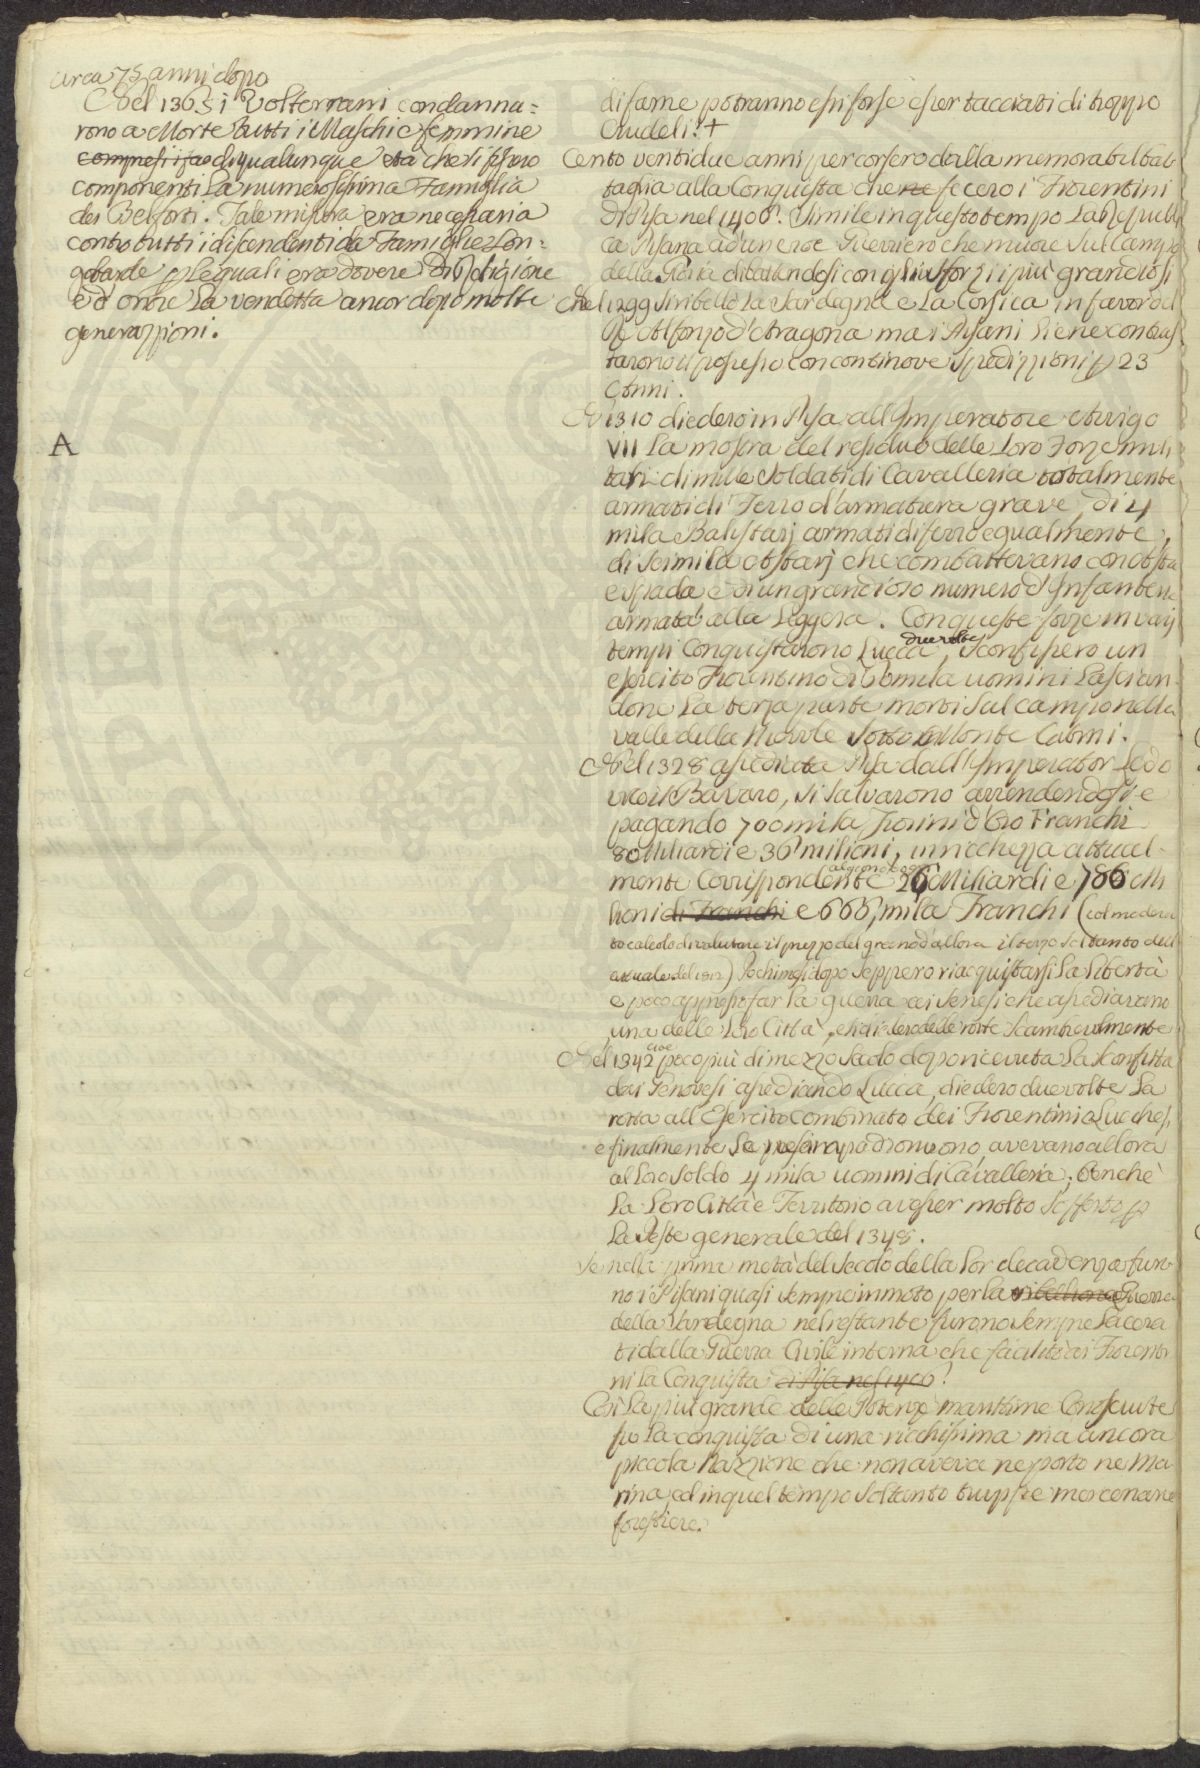 circa 75 anni dopo
Nel 1363 i Volterrani condanna=
rono a Morte tutti i Maschi e femmine
compresi i di qualunque età che si fossero
componenti la numerosissima Famiglia
dei Belforti. Tale misura era necessaria
contro tutti i discendenti da Famiglie Lon=
gobarde p le quali era dovere di Religione
ed onore la vendetta ancor dopo molte
generazzioni.
A
di fame potranno essi forse esser tacciati di troppo
Crudeli? +
Cento ventidue anni percorsero dalla memorabil bat
taglia alla Conquista che ne fecero i Fiorentini
di Pisa nel 1406. Simile in questo tempo la Republi
ca Pisana ad un eroe Guerriero che muore sul campo
della Gloria dibattendosi con gli sforzi i più grandiosi
Nel 1299 si ribellò la Sardegna e la Corsica in favor del
Re Alfonzo d'Aragona ma i Pisani li ene contras
tarono il possesso con continove spedizzioni p 23
Anni.
Nel 1310 diedero in Pisa all'Imperatore Arrigo
VII la mostra del residuo delle loro Forze mili
tari di mille Soldati di Cavalleria totalmente
armati di Ferro d'armatura grave, di 4
mila Balistarj armati di ferro egualmente,
di seimila Astarj che combattevano con Asta
e spada e di un grandioso numero d'Infanteria
armata alla Leggera. Con queste forze in varj
tempi Conquistarono Lucca due volte, sconfissero un
esercito Fiorentino di mila uomini lascian
done la terza parte morti sul campo nella
valle della Nievole sotto Monte Catini.
Nel 1328 assediata Pisa dall'Imperator Lodo
vico il Bavaro, si salvarono arrendendosi e
pagando 700 mila Fiorini d'Oro Franchi
80 Miliardi e 36 milioni, in ricchezza attual=
mente Corrispondente a 26 Miliardi e 786 Mi
lioni di Franchi e 666, mila Franchi (col modera
to calcolo di valutare il prezzo del grano d'allora il terzo soltanto dell
attuale del 1812) Pochi mesi dopo seppero riacquistarsi la libertà
e poco appresso far la guerra ai Senesi che assediavano
una delle loro Città, e si diedero delle rotte scambievolmente
Nel 1342 cioè poco più di mezzo secolo dopo ricevuta la sconfitta
dai Genovesi assediando Lucca, diedero due volte la
rotta all'Esercito combinato dei Fiorentini e Lucchesi,
e finalmente se ne impadronirono, avevano allora
al loro soldo 4 mila uomini di Cavalleria; benchè
la loro Città e Territorio avesser molto sofferto p
la Peste generale del 1348.
Se nella prima metà del secolo della lor decadenza furo
no i Pisani quasi sempre in moto per la ribellione Guerra
della Sardegna nel restante furono sempre lacera
ti dalla Guerra Civile interna che facilitò ai Fiorenti
ni la Conquista di Pisa nel 1406.
Così la più grande delle Potenze maritime Conosciute
fu la conquista di una ricchissima ma ancora
piccola Nazzione che non aveva ne porto ne Ma
rina, ed in quel tempo soltanto truppe mercenarie
forestiere.